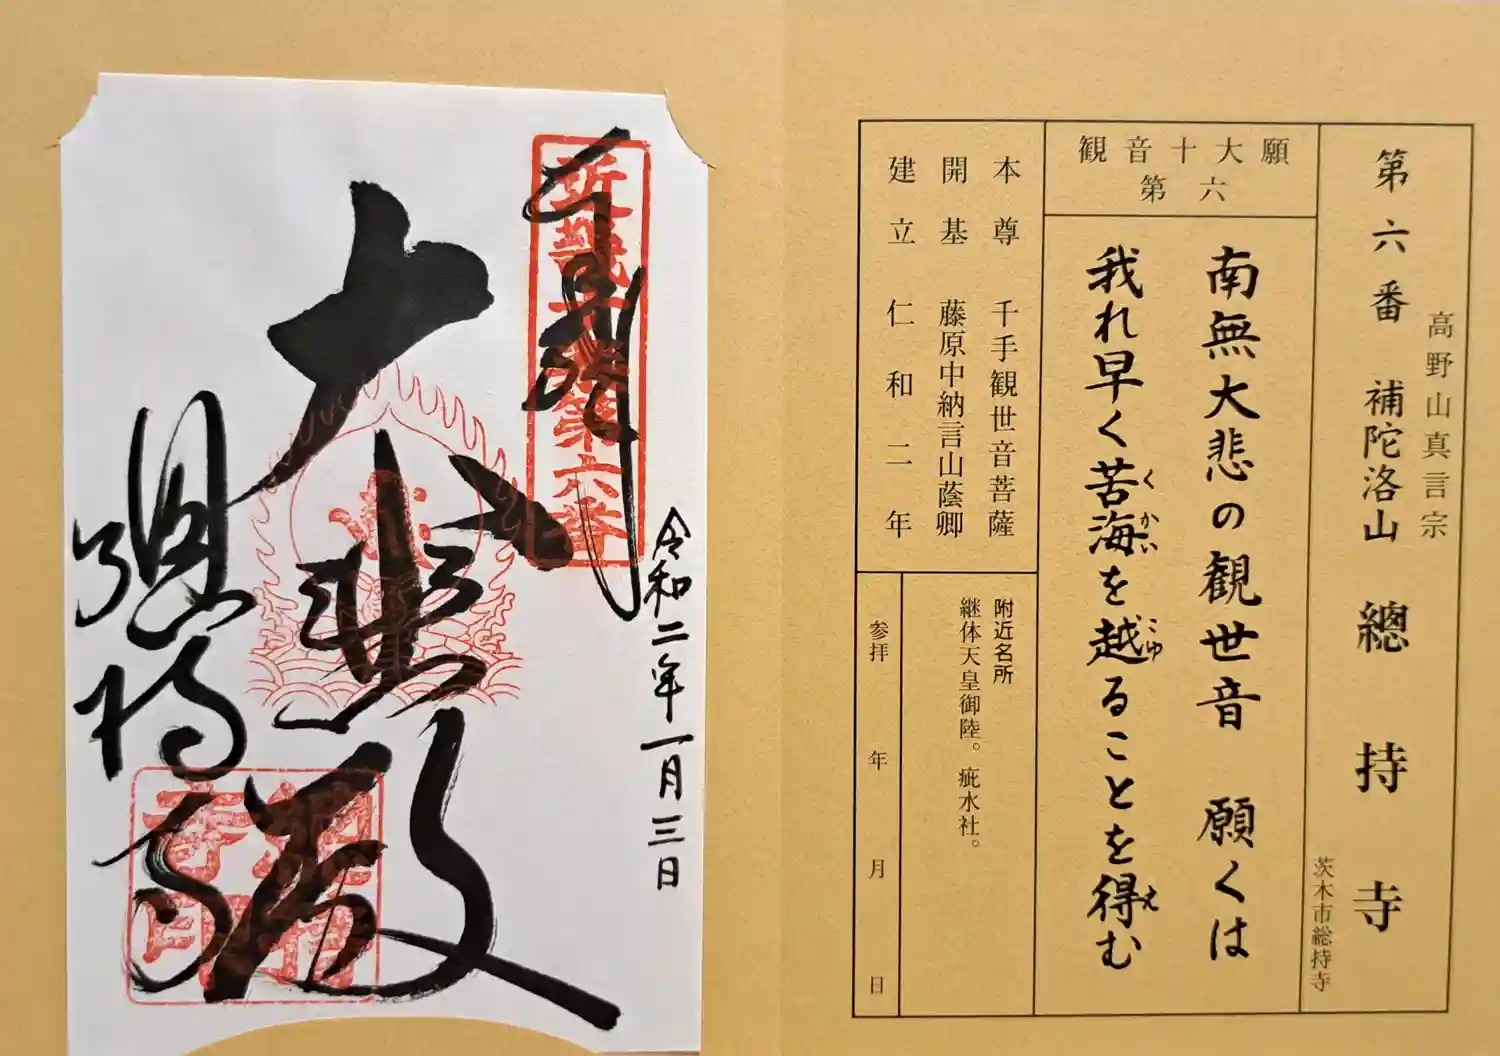 高野山真言宗
第六番 補陀洛山 總持寺
茨木市総持寺
観音十大願
第六
南無大悲の観世音 願くは
我れ早く苦海を越ることを得む
くかい
こゆ
え
本尊 千手観世音菩薩
開基 藤原中納言山蔭卿
建立 仁和二年
附近名所
継体天皇御陸。疵水社。
参拝 年 月 日
令和二年一月三日
第六番
大悲殿
總持寺
總持寺印